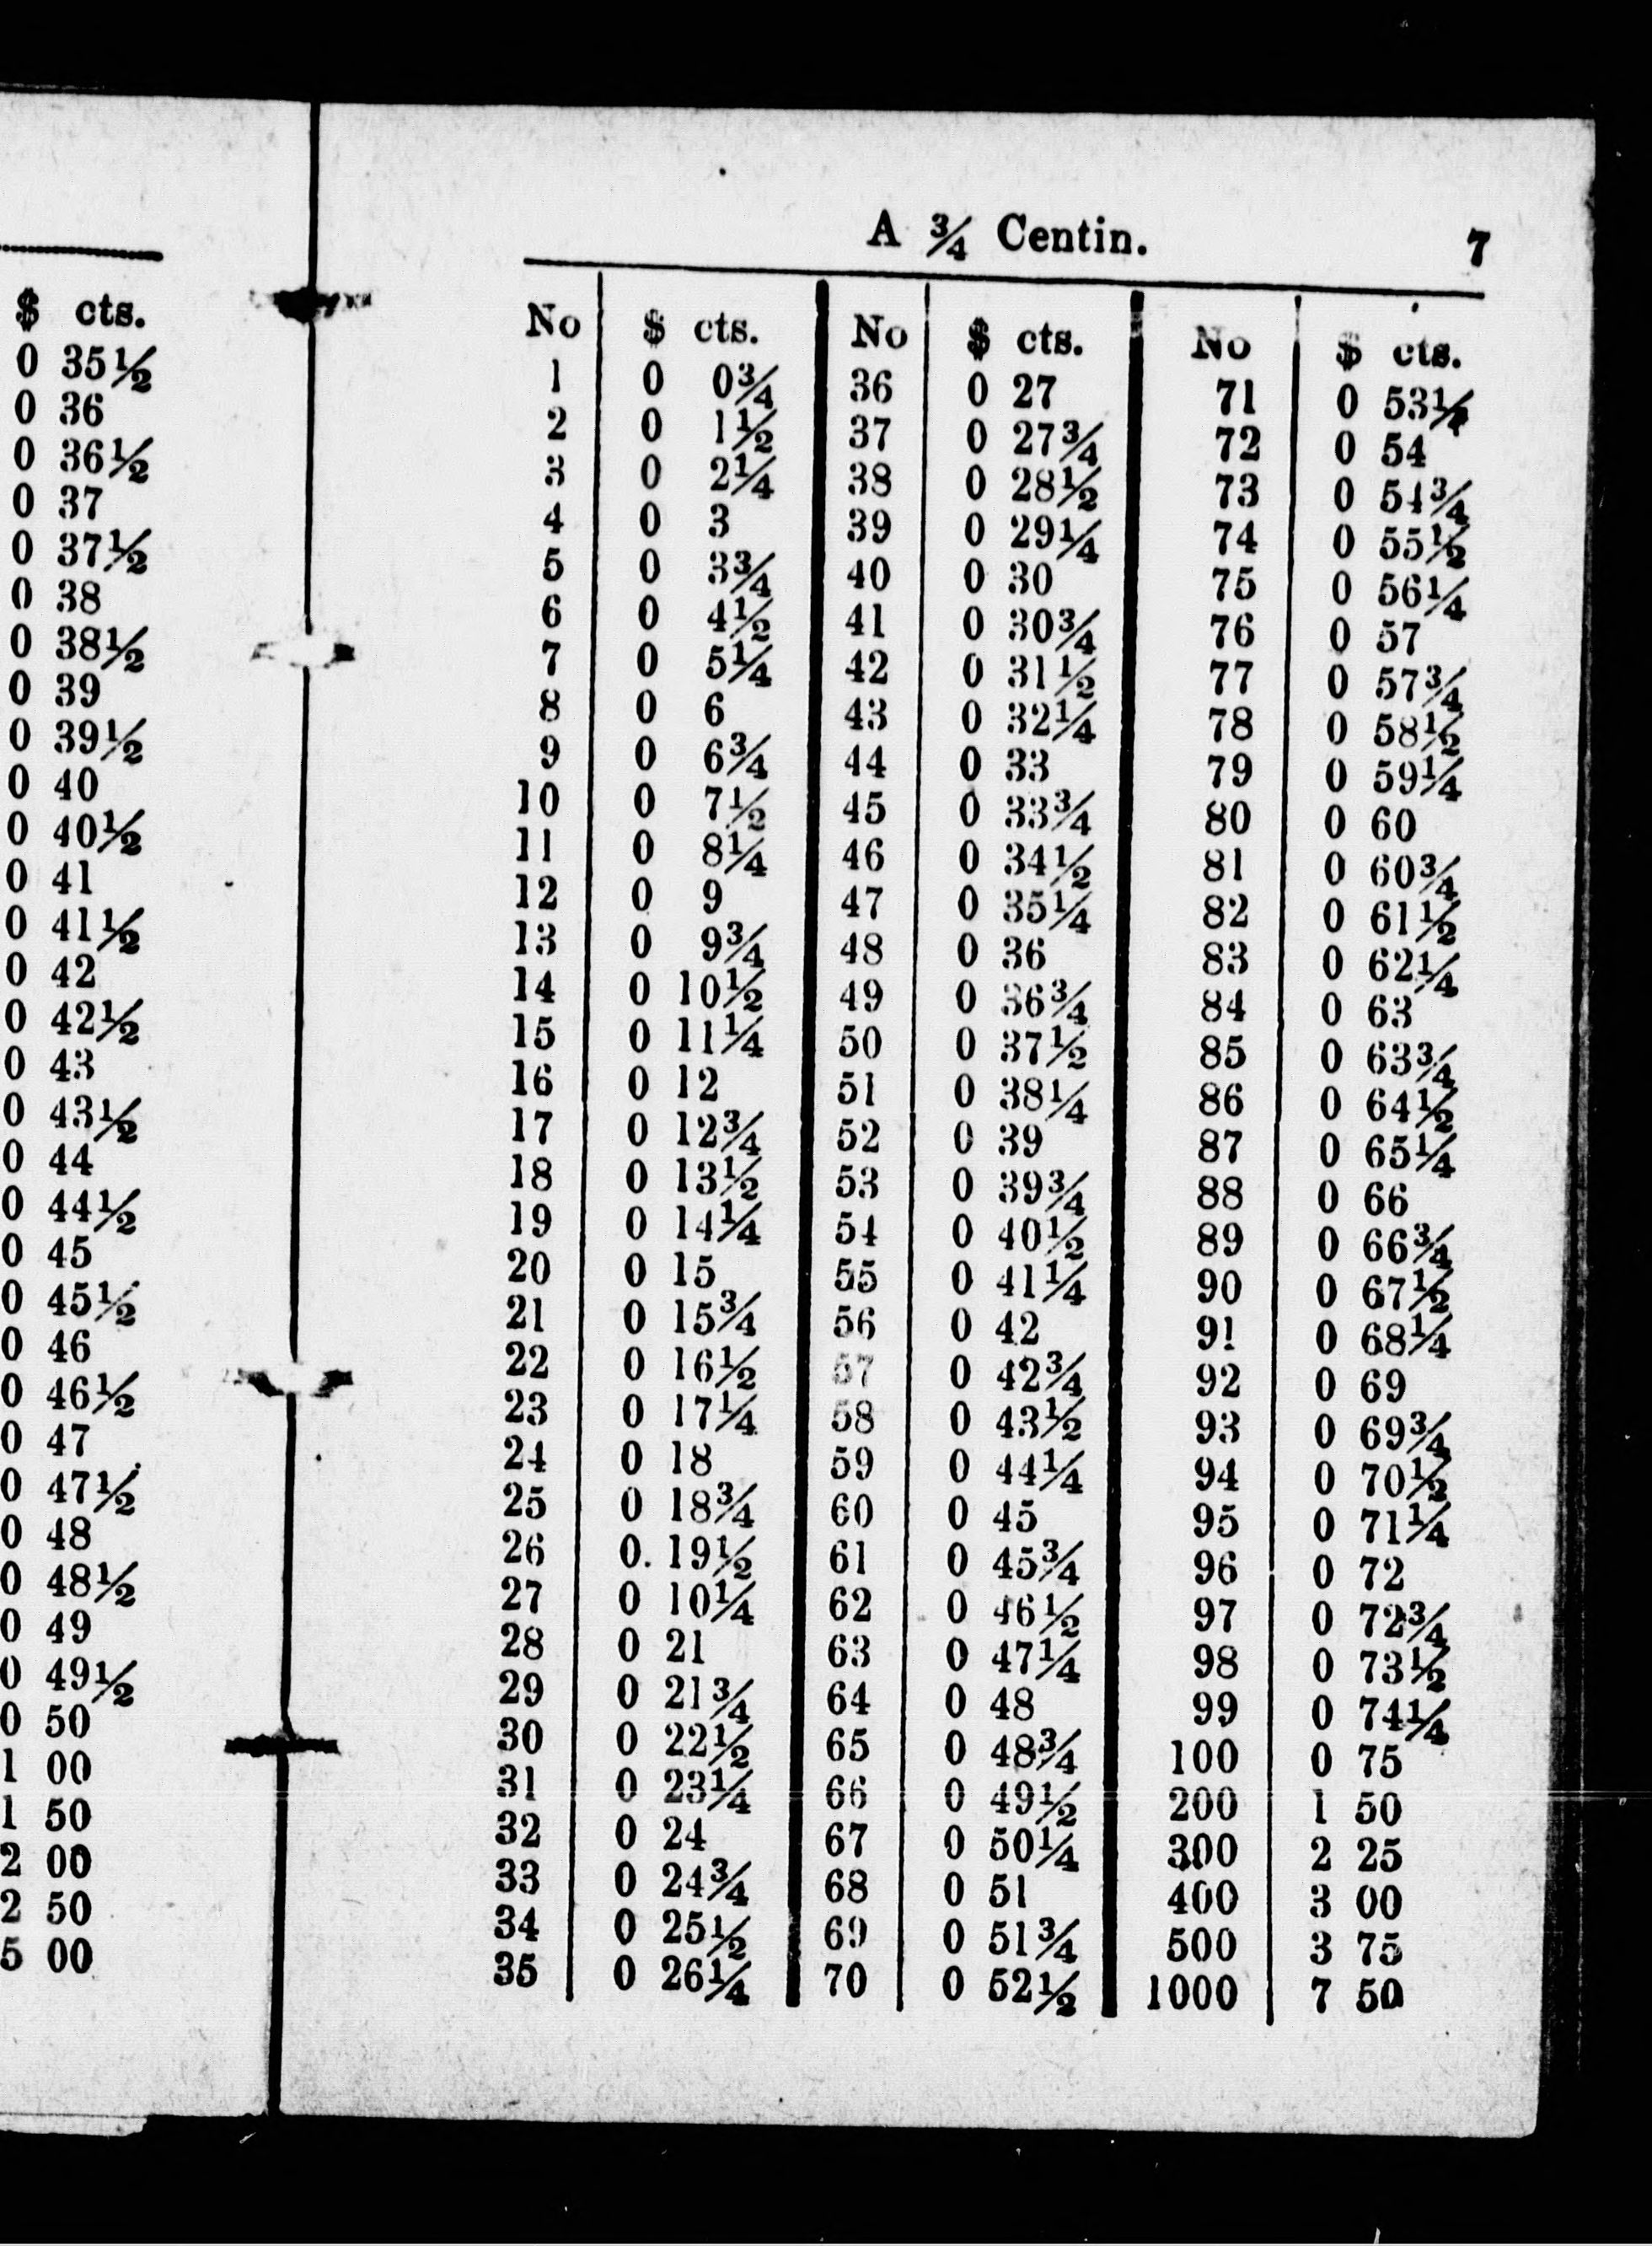 $ cts.
0 35½
0 36
0 36½
0 37
0 37½
0 38
0 38½
0 39
0 39½
0 40
0 40½
0 41
0 41½
0 42
0 42½
0 43
0 43½
0 44
0 44½
0 45
0 45½
0 46
0 46½
0 47
0 47½
0 48
0 48½
0 49
0 49½
0 50
1 00
1 50
2 00
2 50
5 00
A ¾ Centin. 7
No $ cts. No $ cts. No $ cts.
1 0 0¾ 36 0 27 71 0 53¼
2 0 1½ 37 0 27¾ 72 0 54
3 0 2¼ 38 0 28½ 73 0 54¾
4 0 3 39 0 29¼ 74 0 55½
5 0 3¾ 40 0 30 75 0 56¼
6 0 4½ 41 0 30¾ 76 0 57
7 0 5¼ 42 0 31½ 77 0 57¾
8 0 6 43 0 32¼ 78 0 58½
9 0 6¾ 44 0 33 79 0 59¼
10 0 7½ 45 0 33¾ 80 0 60
11 0 8¼ 46 0 34½ 81 0 60¾
12 0 9 47 0 35¼ 82 0 61½
13 0 9¾ 48 0 36 83 0 62¼
14 0 10½ 49 0 36¾ 84 0 63
15 0 11¼ 50 0 37½ 85 0 63¾
16 0 12 51 0 38¼ 86 0 64½
17 0 12¾ 52 0 39 87 0 65¼
18 0 13½ 53 0 39¾ 88 0 66
19 0 14¼ 54 0 40½ 89 0 66¾
20 0 15 55 0 41¼ 90 0 67½
21 0 15¾ 56 0 42 91 0 68¼
22 0 16½ 57 0 42¾ 92 0 69
23 0 17¼ 58 0 43½ 93 0 69¾
24 0 18 59 0 44¼ 94 0 70½
25 0 18¾ 60 0 45 95 0 71¼
26 0. 19½ 61 0 45¾ 96 0 72
27 0 10¼ 62 0 46½ 97 0 72¾
28 0 21 63 0 47¼ 98 0 73½
29 0 21¾ 64 0 48 99 0 74¼
30 0 22½ 65 0 48¾ 100 0 75
31 0 23¼ 66 0 49½ 200 1 50
32 0 24 67 0 50¼ 300 2 25
33 0 24¾ 68 0 51 400 3 00
34 0 25½ 69 0 51¾ 500 3 75
35 0 26¼ 70 0 52½ 1000 7 50